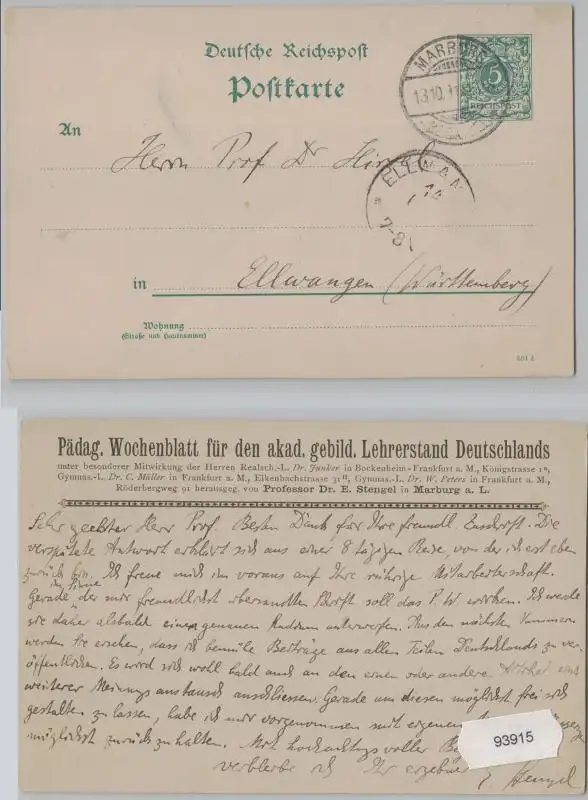 Deutsche Reichspost
Postkarte
MARBURG
13.10.
5
REICHSPOST
An
Herrn Prof Dr
ELLWAN
7-8
in Ellwangen (Württemberg)
Wohnung
(Straße und Hausnummer)
Pädag. Wochenblatt für den akad. gebild. Lehrerstand Deutschlands
unter besonderer Mitwirkung der Herren Realsch.-L. Dr. Junker in Bockenheim-Frankfurt a. M., Königstrasse
Gymnas.-L. Dr. C. Müller in Frankfurt a. M., Elkenbachstrasse 31 Gymnas.-L. Dr. W. Peters in Frankfurt a. M.,
Röderbergweg 91 herausgeg. von Professor Dr. E. Stengel in Marburg a. L.
Sehr geehrter Herr Prof. Besten Dank für Ihre freundl Zuschrift. Die
verspätete Antwort erklärt sich aus einer 8 tägigen Reise, von der ich erst eben
zurück bin. Ich freue mich im voraus auf Ihre rührige Mitarbeiterschaft.
Gerade im Sinne der mir freundlichst übersandten Schrift soll das P. W wirken. Ich werde
sie daher alsbald einem genauen Studium unterwerfen. Aus den nächsten Nummern
werden Sie ersehen, dass ich bemüht Beiträge aus allen Teilen Deutschlands zu ver-
öffentlichen. Es wird sich wohl bald auch an den einen oder anderen Artikel ein
weiterer Meinungsaustausch anschliessen. Gerade um diesen möglichst frei sich
gestalten zu lassen, habe ich mir vorgenommen mit eigenen
möglichst zurück zu halten. Mit hochachtungsvoller
verbleibe ich Ihr ergebener E. Stengel
93915